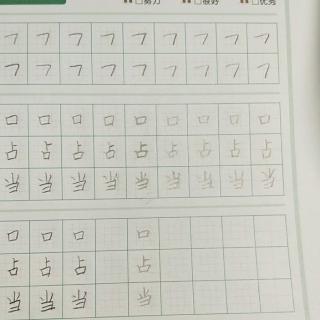 努力 很好 优秀
口 口 口 口 口 口 口 口 口
占 占 占 占 占 占 占 占 占
当 当 当 当 当 当 当 当 当
口 口 口 口
占 占 占 占
当 当 当 当